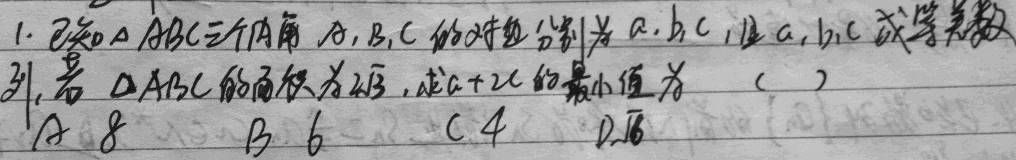 1. 已知△ABC三个内角A,B,C的对边分别为a.b,c,且a,b,c成等差数
列,若△ABC的面积为2√3,求a+2c的最小值为 ( )
A 8 B 6 C 4 D.√6